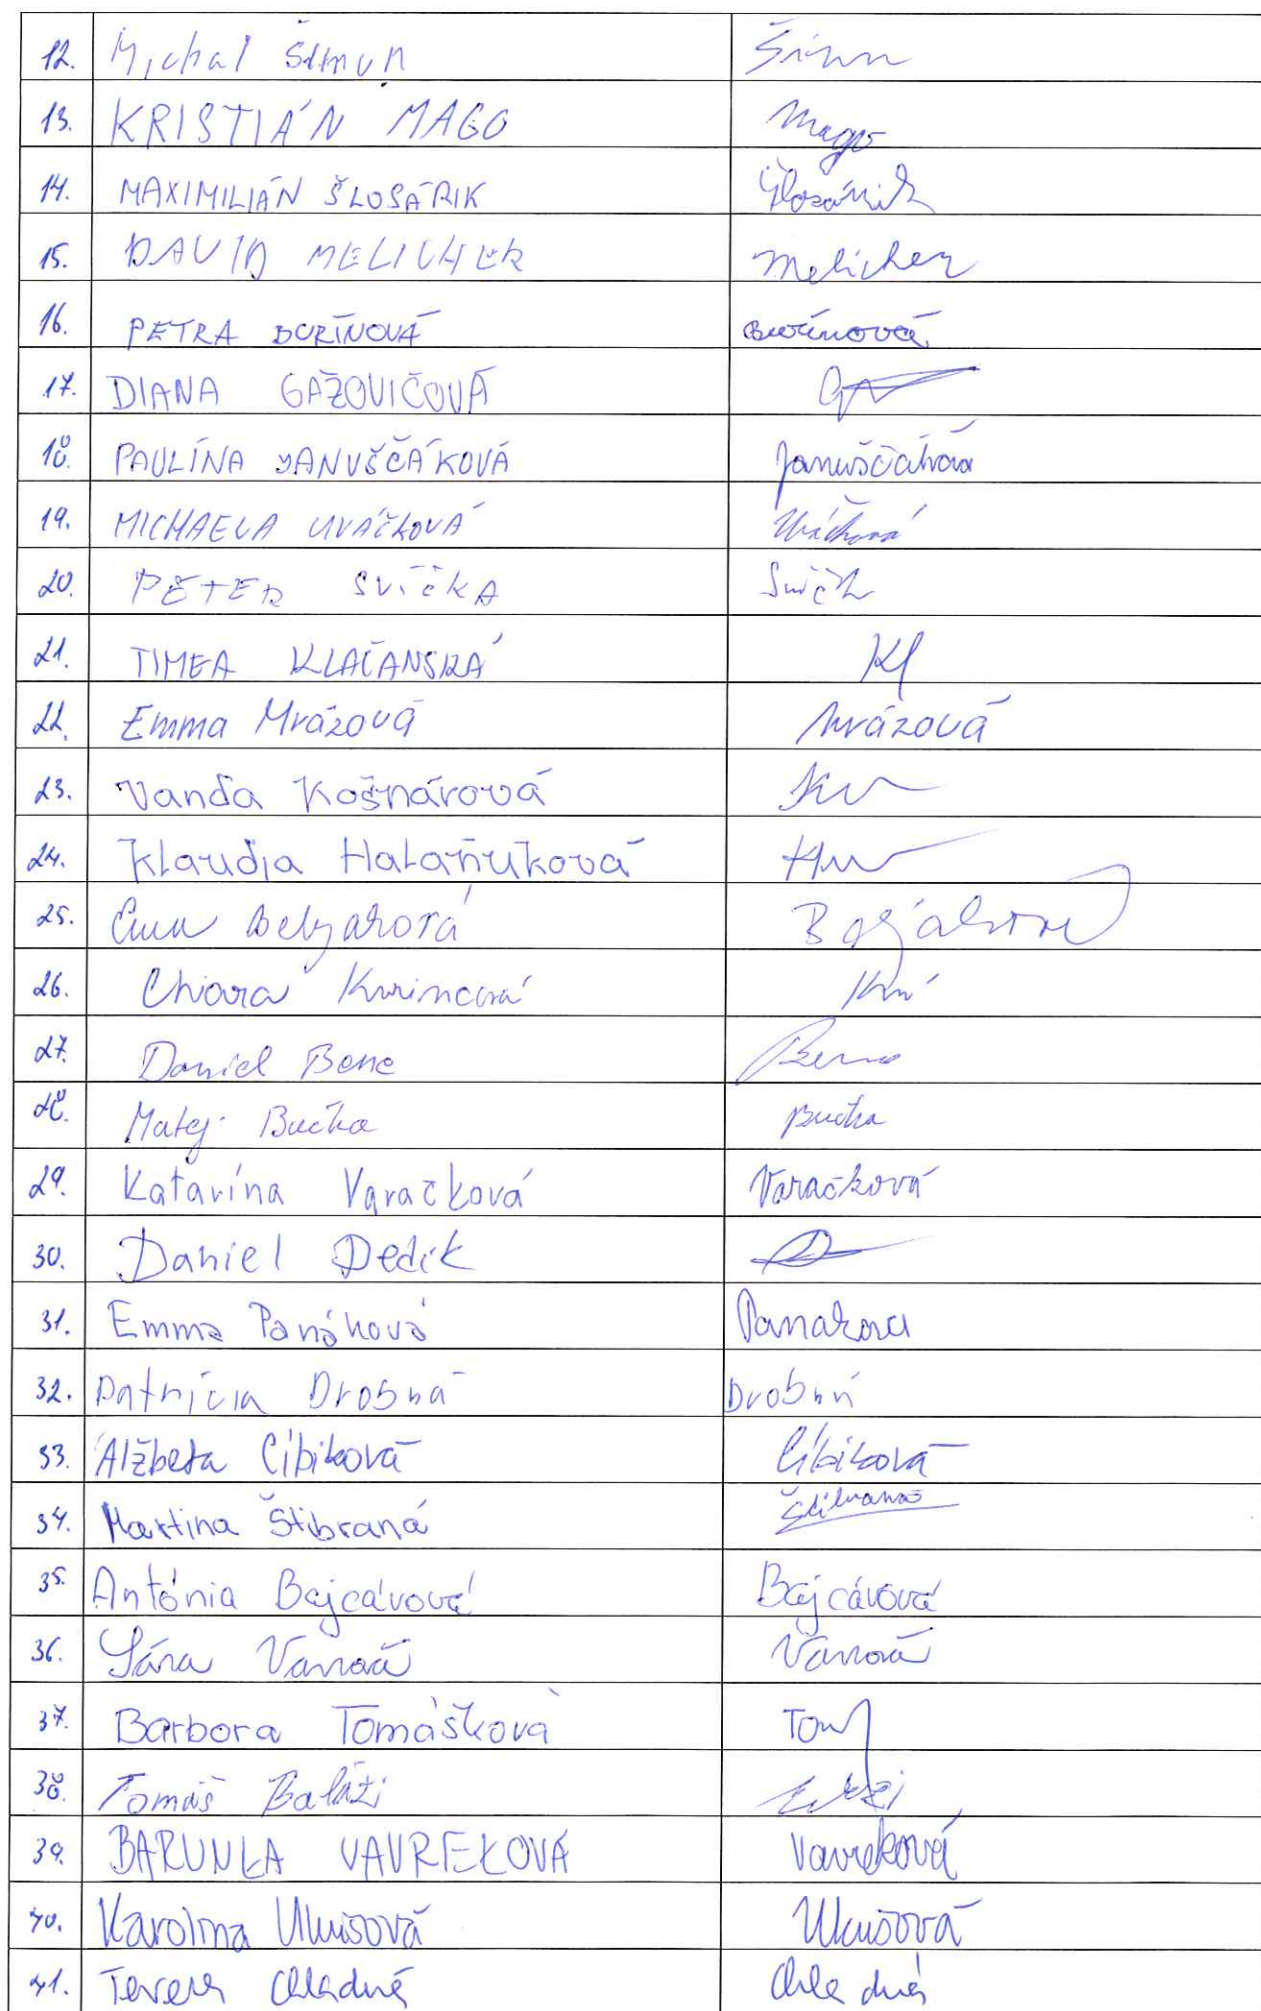 12. Michal Šimun Šimun
13. KRISTIÁN MAGO Mago
14. MAXIMILIÁN ŠLOSÁRIK Šlosárik
15. DAVID MELICHER Melicher
16. PETRA BURÍNOVÁ Burínová
17. DIANA GAŽOVIČOVÁ
18. PAULÍNA JANUŠČÁKOVÁ Januščáková
19. MICHAELA UVÁČKOVÁ Uváčková
20. PETER SVIČKA Svičk
21. TIMEA KLAČANSKÁ Kl
22. Emma Mrázová Mrázová
23. Vanda Košnárová
24. Klaudia Halaňuková
25. Ema
26. Chiara
27. Daniel Bene Bene
28. Matej Bučka Bučka
29. Katarína Varačková Varačková
30. Daniel Dedík
31. Emma Panáková Panakova
32. Patrícia Drobná Drobná
33. Alžbeta Cíbiková Cíbiková
34. Martina Štibraná Štibraná
35. Antónia Bajcárová Bajcárová
36. Sára Vanová Vanová
37. Barbora Tomášková Tom
38. Tomáš Baláži
39. BARUNKA VAVREKOVÁ Vavreková
40. Karolína
41. Tereza Chladná Chladná